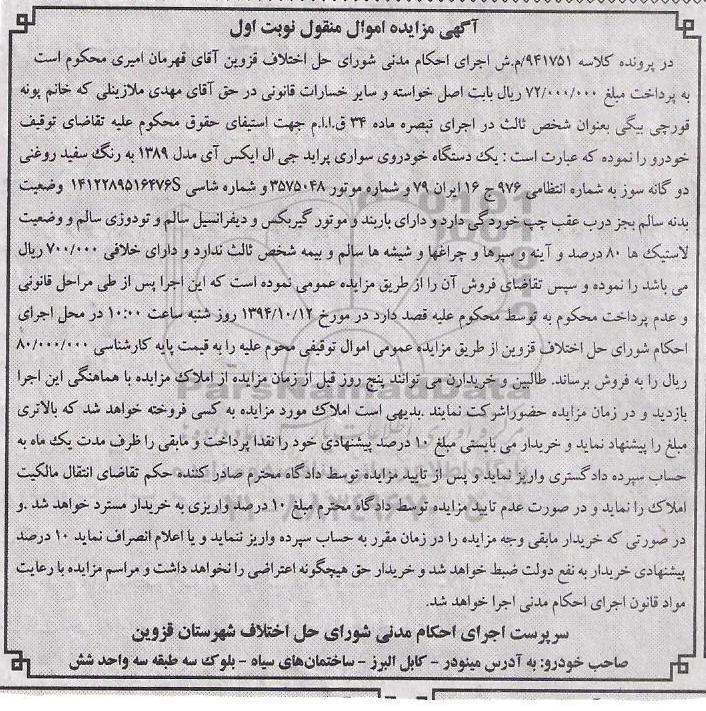 آگهی مزایده اموال منقول نوبت اول
در پرونده کلاسه ۹۴۱۷۵۱/م.ش اجرای احکام مدنی شورای حل اختلاف قزوین آقای قهرمان امیری محکوم است
به پرداخت مبلغ ۷۲/۰۰۰/۰۰۰ ریال بابت اصل خواسته و سایر خسارات قانونی در حق آقای مهدی ملازینلی که خانم پونه
قورچی بیگی بعنوان شخص ثالث در اجرای تبصره ماده ۳۴ ق.ا.ا.م جهت استیفای حقوق محکوم علیه تقاضای توقیف
خودرو را نموده که عبارت است : یک دستگاه خودروی سواری پراید جی ال ایکس آی مدل ۱۳۸۹ به رنگ سفید روغنی
دو گانه سوز به شماره انتظامی ۹۷۶ ج ۱۶ ایران ۷۹ و شماره موتور ۳۵۷۵۰۴۸ و شماره شاسی S۱۴۱۲۲۸۹۵۱۶۴۷۶ وضعیت
بدنه سالم بجز درب عقب چپ خوردگی دارد و دارای باربند و موتور گیربکس و دیفرانسیل سالم و تودوزی سالم و وضعیت
لاستیک ها ۸۰ درصد و آینه و سپرها و چراغها و شیشه ها سالم و بیمه شخص ثالث ندارد و دارای خلافی ۷۰۰/۰۰۰ ریال
می باشد را نموده و سپس تقاضای فروش آن را از طریق مزایده عمومی نموده است که این اجرا پس از طی مراحل قانونی
و عدم پرداخت محکوم به توسط محکوم علیه قصد دارد در مورخ ۱۳۹۴/۱۰/۱۲ روز شنبه ساعت ۱۰:۰۰ در محل اجرای
احکام شورای حل اختلاف قزوین از طریق مزایده عمومی اموال توقیفی محوم علیه را به قیمت پایه کارشناسی ۸۰/۰۰۰/۰۰۰
ریال را به فروش برساند. طالبین و خریدارن می توانند پنج روز قبل از زمان مزایده از املاک مزایده با هماهنگی این اجرا
بازدید و در زمان مزایده حضوراشرکت نمایند .بدیهی است املاک مورد مزایده به کسی فروخته خواهد شد که بالاتری
مبلغ را پیشنهاد نماید و خریدار می بایستی مبلغ ۱۰ درصد پیشنهادی خود را نقدا پرداخت و مابقی را ظرف مدت یک ماه به
حساب سپرده دادگستری واریز نماید و پس از تایید مزایده توسط دادگاه محترم صادر کننده حکم تقاضای انتقال مالکیت
املاک را نماید و در صورت عدم تایید مزایده توسط دادگاه محترم مبلغ ۱۰ درصد واریزی به خریدار مسترد خواهد شد .و
در صورتی که خریدار مابقی وجه مزایده را در زمان مقرر به حساب سپرده واریز ننماید و یا اعلام انصراف نماید ۱۰ درصد
پیشنهادی خریدار به نفع دولت ضبط خواهد شد و خریدار حق هیچگونه اعتراضی را نخواهد داشت و مراسم مزایده با رعایت
مواد قانون اجرای احکام مدنی اجرا خواهد شد.
سرپرست اجرای احکام مدنی شورای حل اختلاف شهرستان قزوین
صاحب خودرو: به آدرس مینودر - کابل البرز - ساختمان‌های سپاه - بلوک سه طبقه سه واحد شش
ParsNamadData